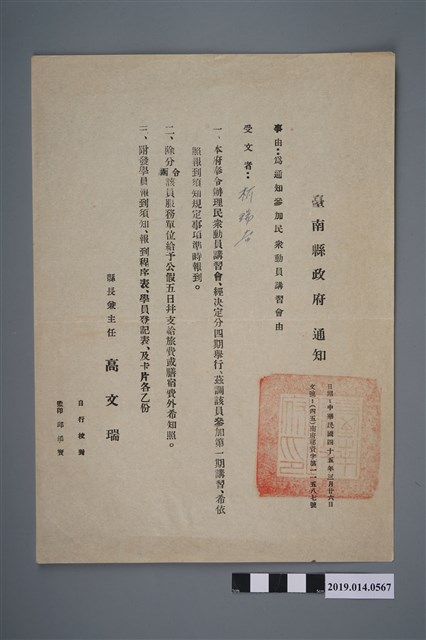 臺南縣政府 通知
日期：中華民國四十五年三月廿六日
文號：(四五)南府 字第一一五八七號
事由：爲通知參加民衆動員講習會由
受文者：
一、本府奉令辦理民衆動員講習會、經决定分四期舉行、茲調該員參加第一期講習、希依
照報到須知規定事項準時報到。
二、除分令該員服務單位給予公假五日幷支給旅費或膳宿費外希知照。
三、附發學員報到須知、報到程序表、學員登記表、及卡片各乙份
縣長兼主任 高文瑞
自行
監印 邱
2019.014.0567